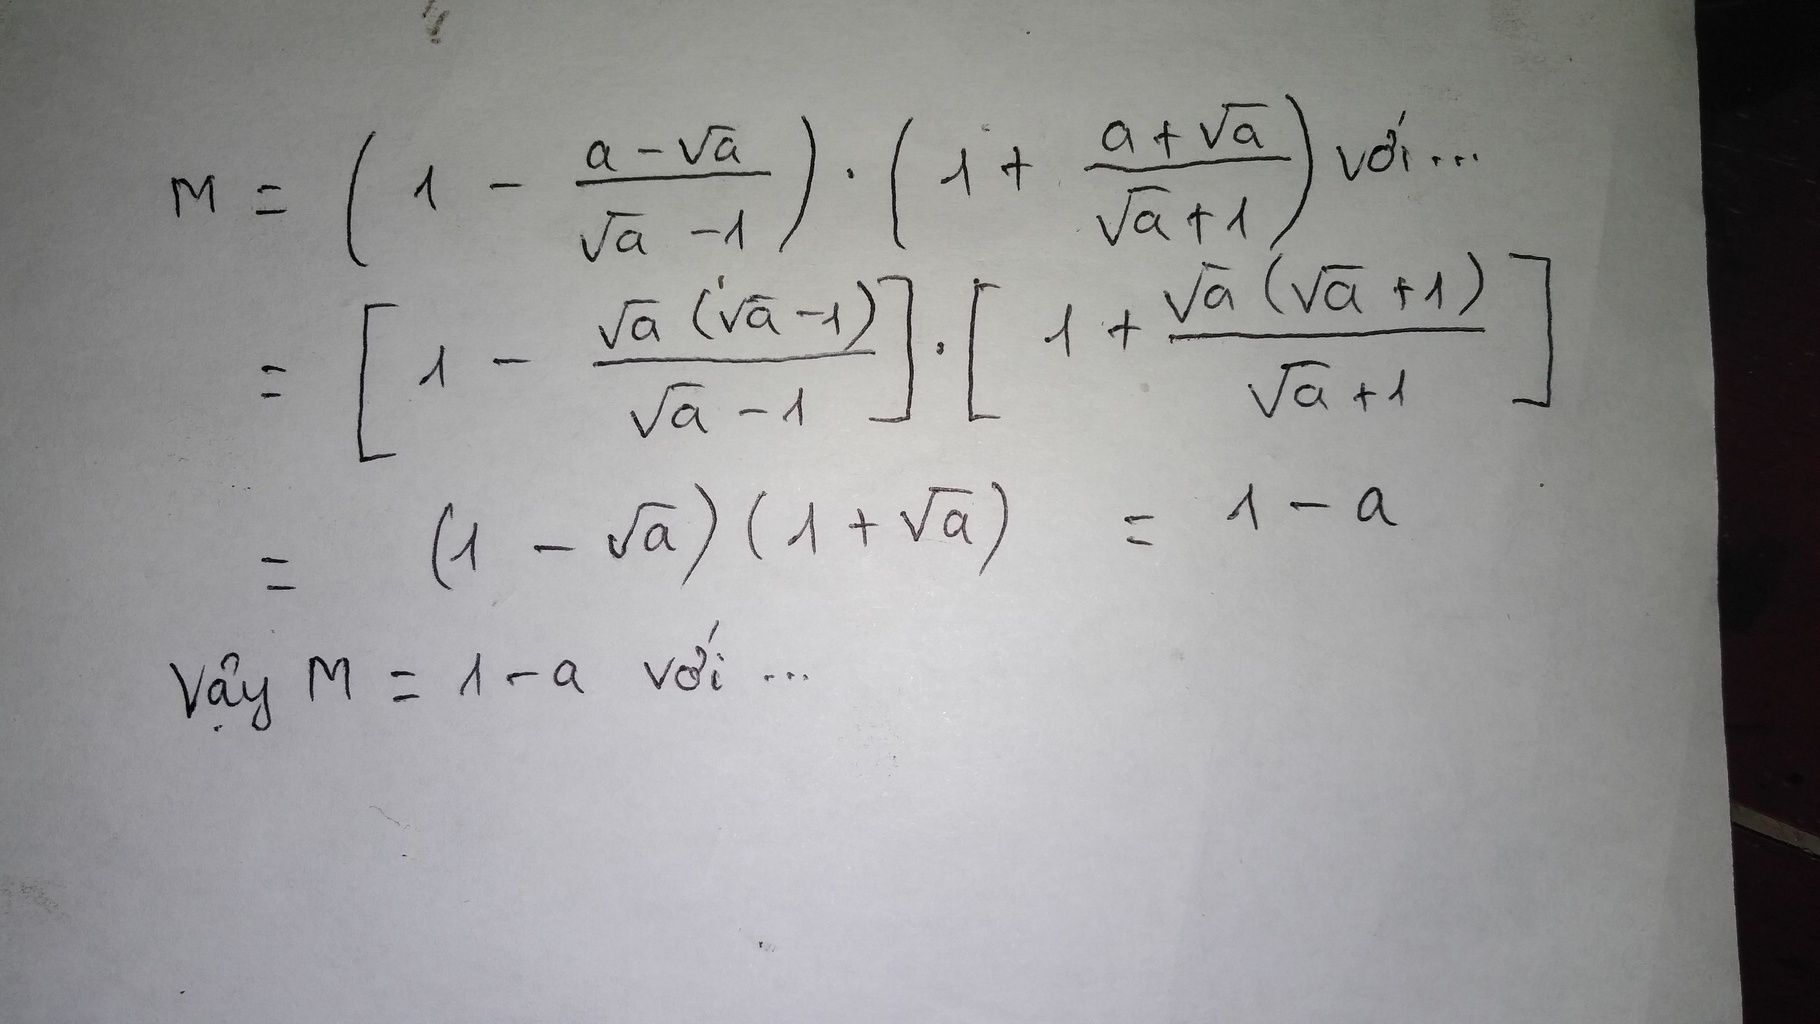 M = (1 - \frac{a - \sqrt{a}}{\sqrt{a} - 1}) . (1 + \frac{a + \sqrt{a}}{\sqrt{a} + 1}) với ...
= [1 - \frac{\sqrt{a} (\sqrt{a} - 1)}{\sqrt{a} - 1}] . [1 + \frac{\sqrt{a} (\sqrt{a} + 1)}{\sqrt{a} + 1}]
= (1 - \sqrt{a}) (1 + \sqrt{a}) = 1 - a
Vậy M = 1 - a với ...